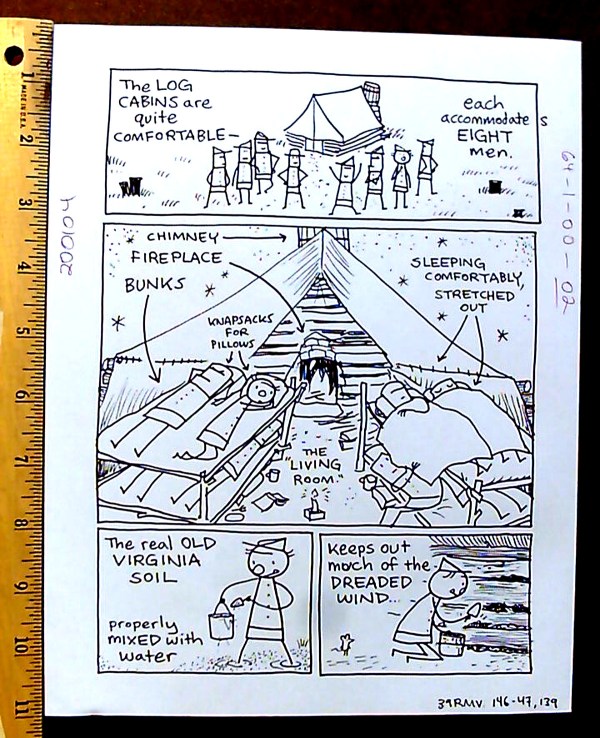 The LOG
CABINS are
quite
COMFORTABLE—
each
accommodates
EIGHT
men.
CHIMNEY
FIREPLACE
BUNKS
KNAPSACKS
FOR
PILLOWS
SLEEPING
COMFORTABLY,
STRETCHED
OUT
THE
"LIVING
ROOM."
The real OLD
VIRGINIA
SOIL
properly
MIXED with
water
Keeps out
much of the
DREADED
WIND...
39RMV 146-47, 139
200104
64-1-00-02
1
2
3
4
5
6
7
8
9
10
11